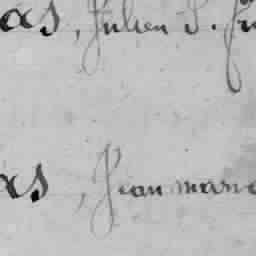 as, Julien P.
as, Jean marie